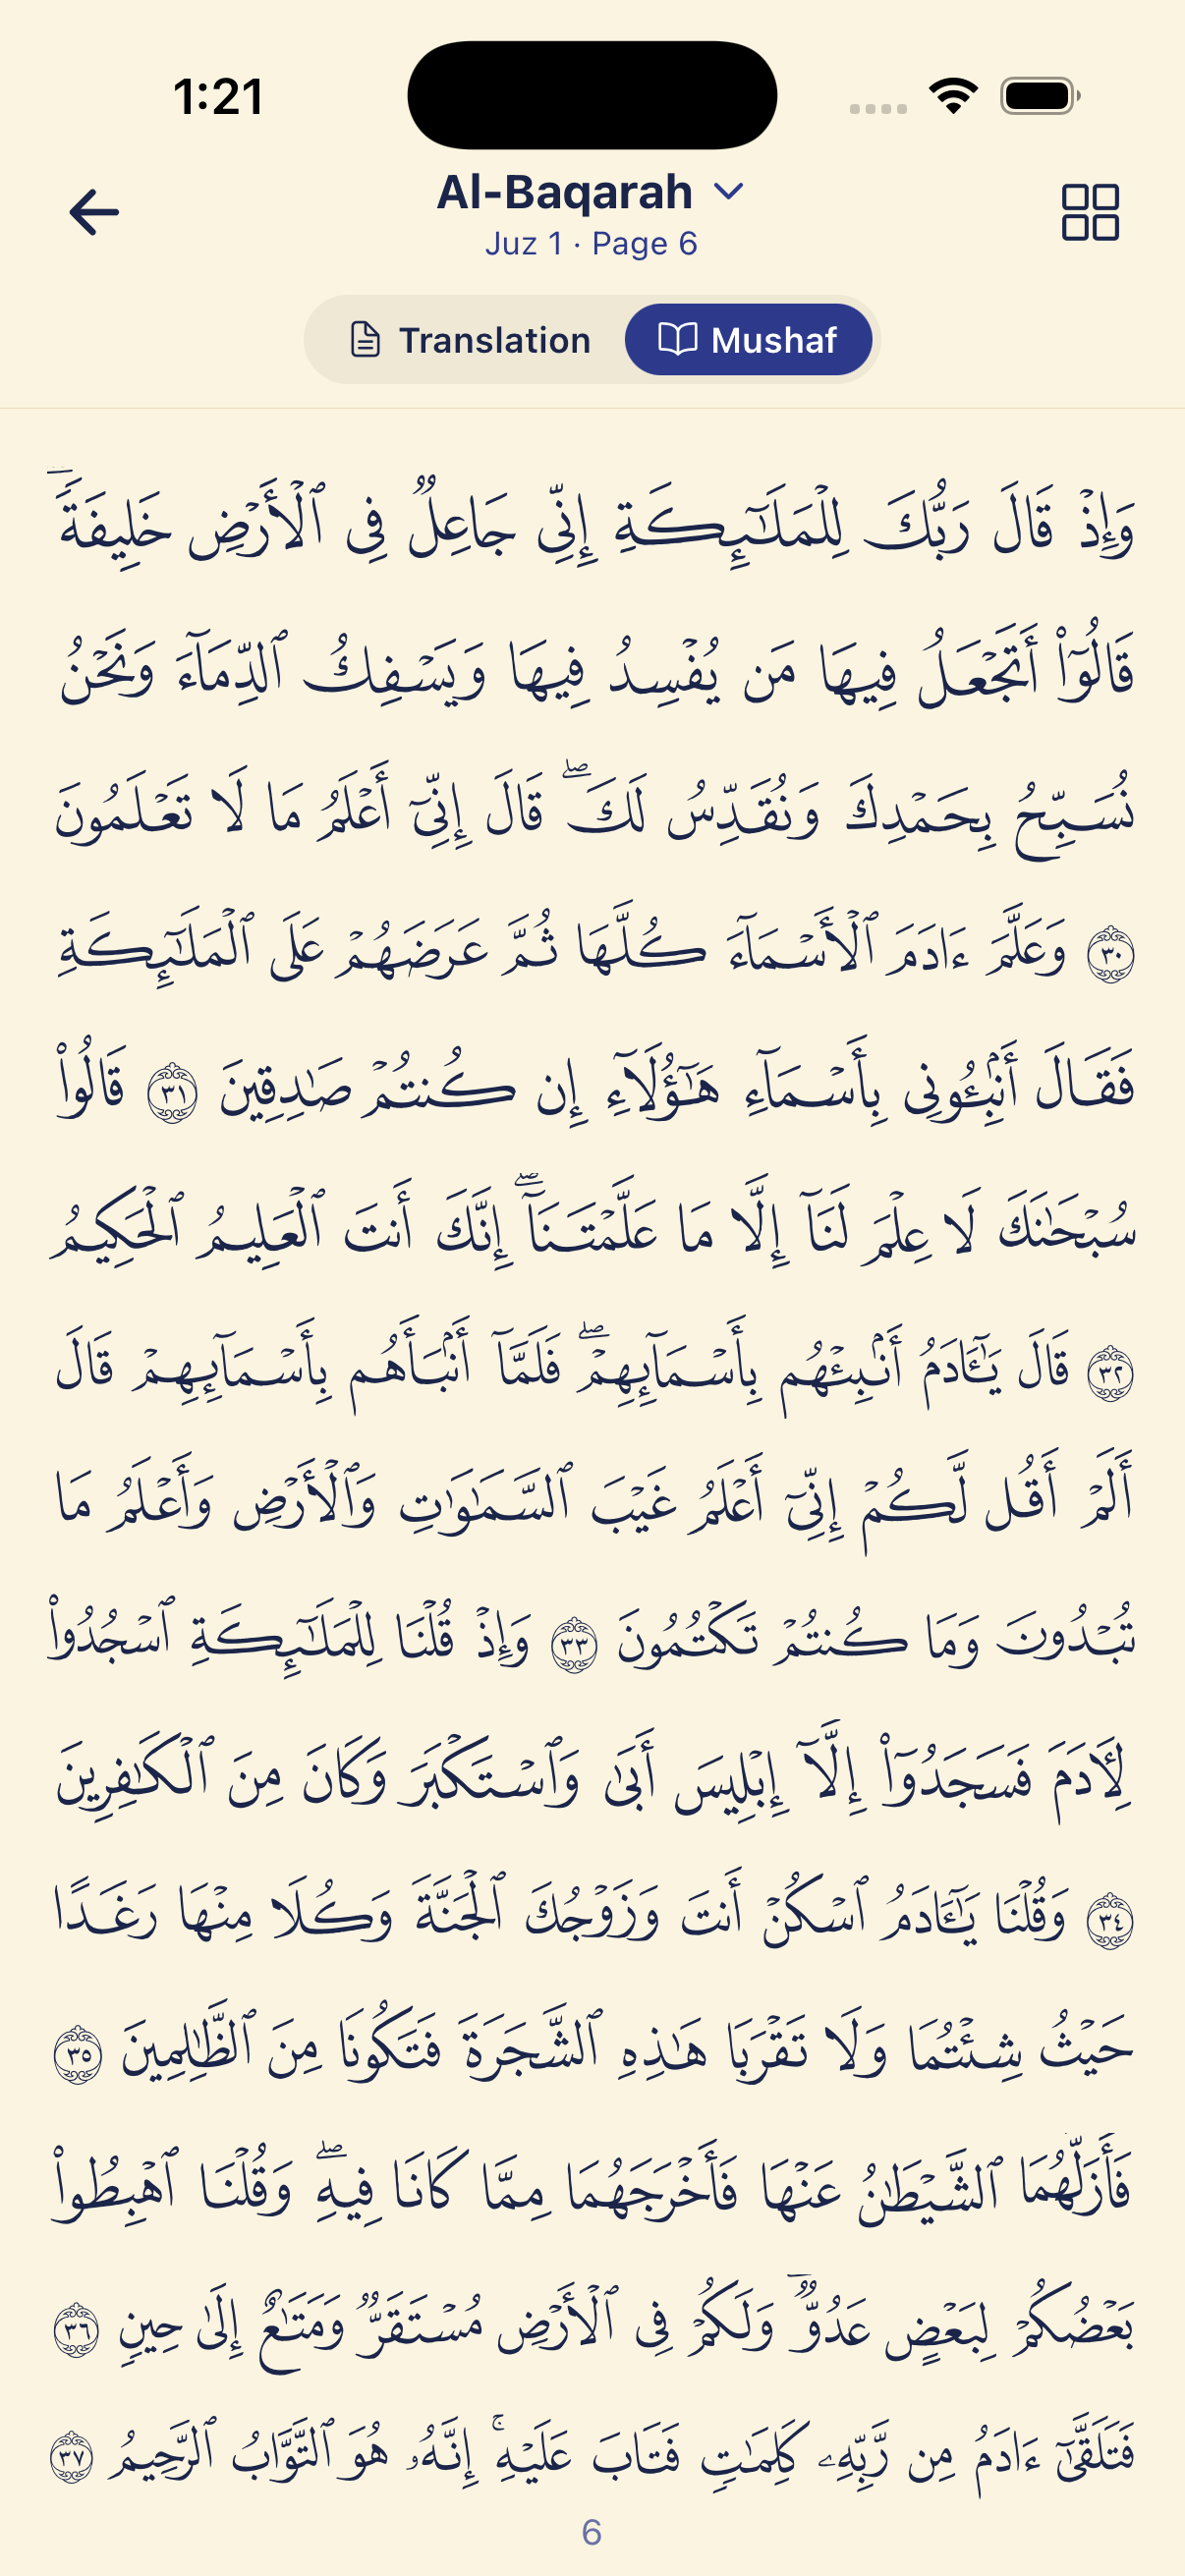 1:21
Al-Baqarah
Juz 1 · Page 6
Translation
Mushaf
وَإِذۡ قَالَ رَبُّكَ لِلۡمَلَـٰٓئِكَةِ إِنِّی جَاعِلࣱ فِی ٱلۡأَرۡضِ خَلِیفَةࣰۖ
قَالُوۤا۟ أَتَجۡعَلُ فِیهَا مَن یُفۡسِدُ فِیهَا وَیَسۡفِكُ ٱلدِّمَاۤءَ وَنَحۡنُ
نُسَبِّحُ بِحَمۡدِكَ وَنُقَدِّسُ لَكَۖ قَالَ إِنِّیۤ أَعۡلَمُ مَا لَا تَعۡلَمُونَ
٣٠ وَعَلَّمَ ءَادَمَ ٱلۡأَسۡمَاۤءَ كُلَّهَا ثُمَّ عَرَضَهُمۡ عَلَى ٱلۡمَلَـٰٓئِكَةِ
فَقَالَ أَنۢبِـُٔونِی بِأَسۡمَاۤءِ هَـٰۤؤُلَاۤءِ إِن كُنتُمۡ صَـٰدِقِینَ ٣١ قَالُوا۟
سُبۡحَـٰنَكَ لَا عِلۡمَ لَنَاۤ إِلَّا مَا عَلَّمۡتَنَاۤۖ إِنَّكَ أَنتَ ٱلۡعَلِیمُ ٱلۡحَكِیمُ
٣٢ قَالَ یَـٰۤـَٔادَمُ أَنۢبِئۡهُم بِأَسۡمَاۤئِهِمۡۖ فَلَمَّاۤ أَنۢبَأَهُم بِأَسۡمَاۤئِهِمۡ قَالَ
أَلَمۡ أَقُل لَّكُمۡ إِنِّیۤ أَعۡلَمُ غَیۡبَ ٱلسَّمَـٰوَ ٰتِ وَٱلۡأَرۡضِ وَأَعۡلَمُ مَا
تُبۡدُونَ وَمَا كُنتُمۡ تَكۡتُمُونَ ٣٣ وَإِذۡ قُلۡنَا لِلۡمَلَـٰٓئِكَةِ ٱسۡجُدُوا۟
لِـَٔادَمَ فَسَجَدُوۤا۟ إِلَّاۤ إِبۡلِیسَ أَبَىٰ وَٱسۡتَكۡبَرَ وَكَانَ مِنَ ٱلۡكَـٰفِرِینَ
٣٤ وَقُلۡنَا یَـٰۤـَٔادَمُ ٱسۡكُنۡ أَنتَ وَزَوۡجُكَ ٱلۡجَنَّةَ وَكُلَا مِنۡهَا رَغَدًا
حَیۡثُ شِئۡتُمَا وَلَا تَقۡرَبَا هَـٰذِهِ ٱلشَّجَرَةَ فَتَكُونَا مِنَ ٱلظَّـٰلِمِینَ ٣٥
فَأَزَلَّهُمَا ٱلشَّیۡطَـٰنُ عَنۡهَا فَأَخۡرَجَهُمَا مِمَّا كَانَا فِیهِۖ وَقُلۡنَا ٱهۡبِطُوا۟
بَعۡضُكُمۡ لِبَعۡضٍ عَدُوࣱّۖ وَلَكُمۡ فِی ٱلۡأَرۡضِ مُسۡتَقَرࣱّ وَمَتَـٰعٌ إِلَىٰ حِینٍ ٣٦
فَتَلَقَّىٰۤ ءَادَمُ مِن رَّبِّهِۦ كَلِمَـٰتٍ فَتَابَ عَلَیۡهِۚ إِنَّهُۥ هُوَ ٱلتَّوَّابُ ٱلرَّحِیمُ ٣٧
6